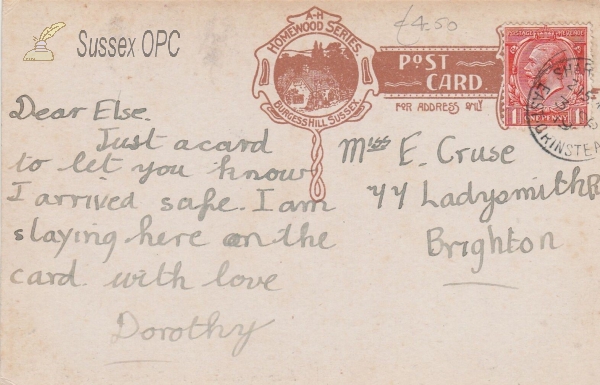 Sussex OPC
£4.50
A-H
HOMEWOOD SERIES.
BURGESS HILL SUSSEX
POST
CARD.
FOR ADDRESS ONLY
POSTAGE REVENUE
1 ONE PENNY 1
Dear Else.
Just a card
to let you know
I arrived safe. I am
staying here on the
card. with love
Dorothy
Miss E. Cruse
77 Ladysmith R
Brighton